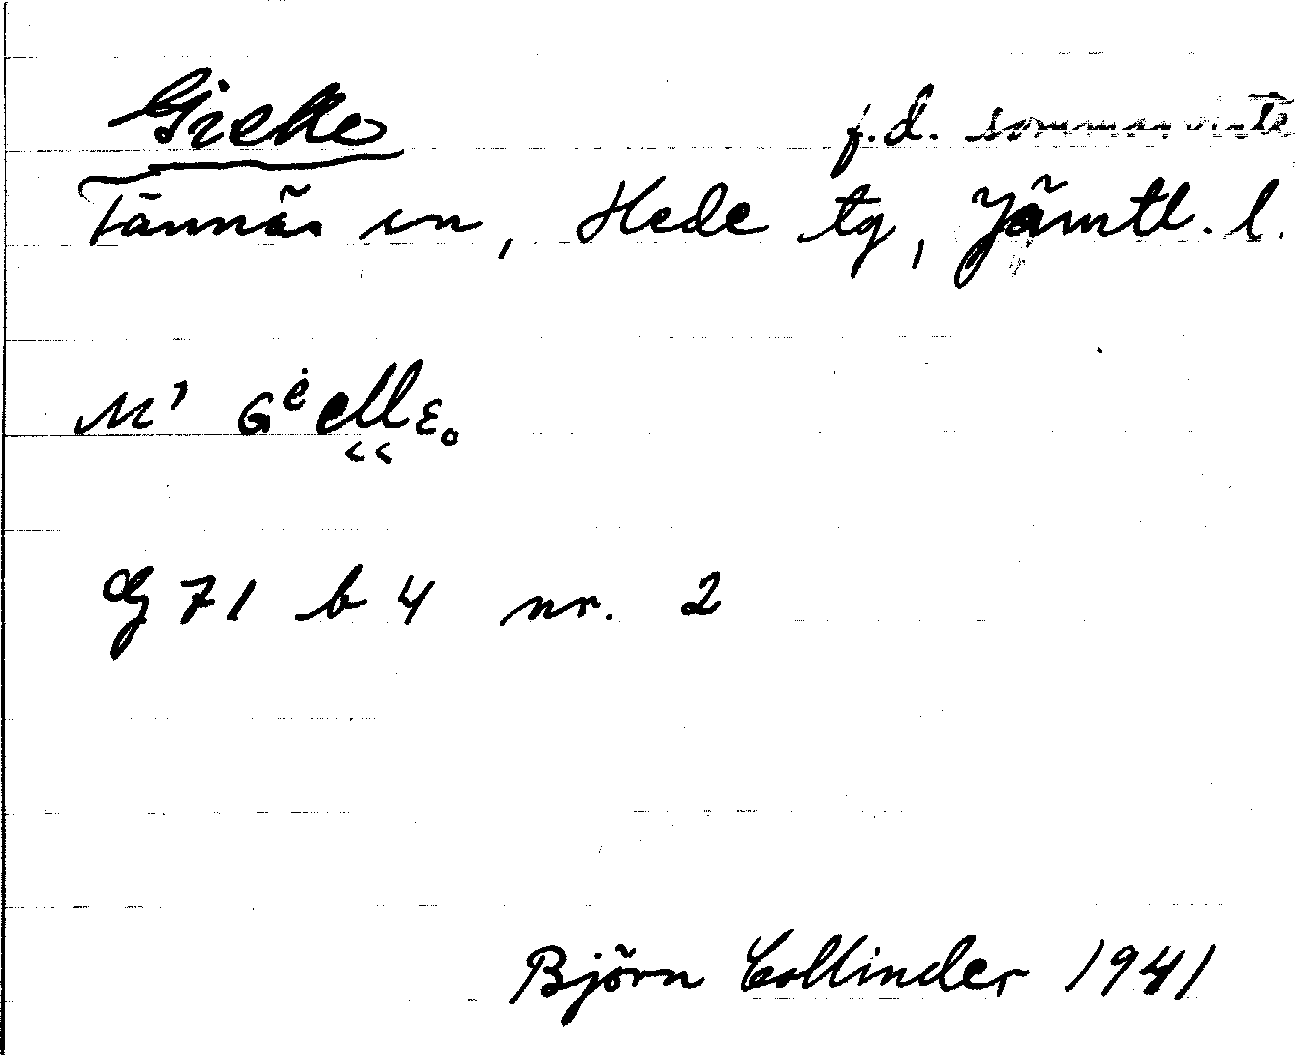 Gielle f.d. sommarviste
Tännäs sn, Hede tg, Jämtl. l.
M' Gėellε
G 71 b 4 nr. 2
Björn Collinder 1941